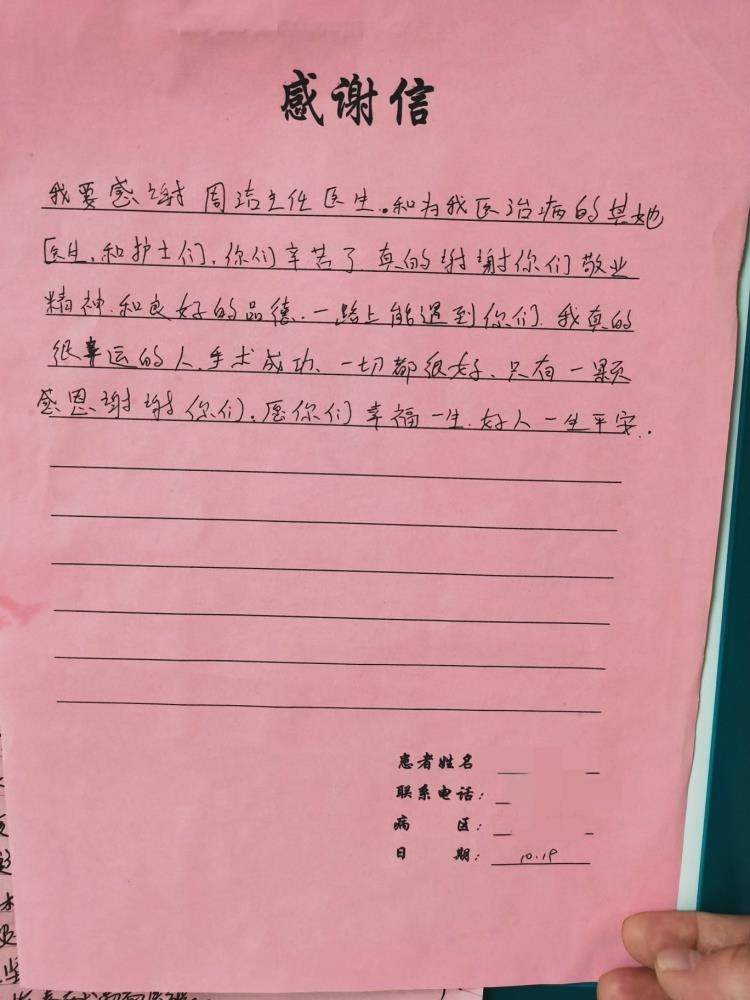 感谢信
我要感谢 周洁主任医生。和为我医治病的其她
医生、和护士们、你们辛苦了 真的谢谢你们敬业
精神、和良好的品德、一路上能遇到你们、我真的
很幸运的人、手术成功、一切都很好、只有一颗
感恩谢谢你们、愿你们幸福一生、好人一生平安..
患者姓名
联系电话：
病 区：
日 期： 10.19